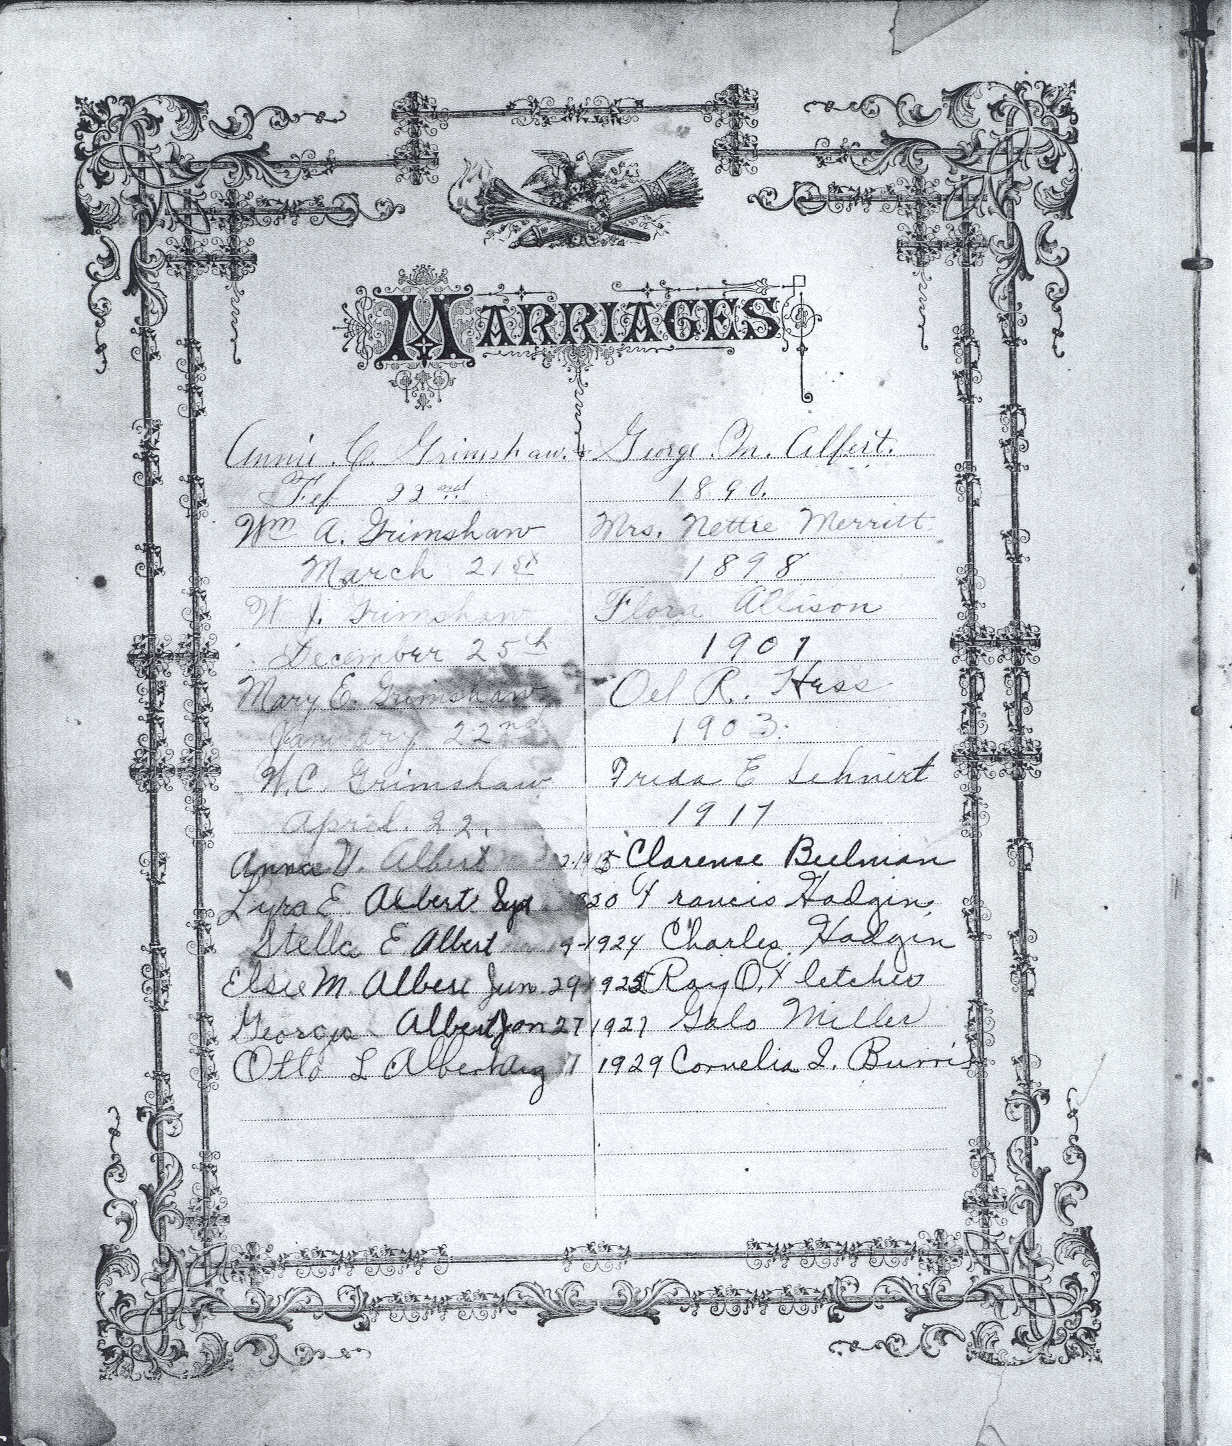 MARRIAGES
Annie. C. Grimshaw. & George. M. Alfert.
Fef 22nd 1890.
Wm A. Grimshaw Mrs. Nettie Merritt
March 21st 1898
W. J. Grimshaw Flora Allison
December 25th 1901
Mary E. Grimshaw Oel R. Hess
January 22nd 1903.
W.C. Grimshaw Freda E Schniert
April. 22. 1917
Anna V. Albert Clarense Beelman
Lyra E Albert Sep 820 Francis Hodgin
Stella E. Albert 9-1924 Charles Hodgin
Elsie M. Albert Jun. 29 1925 Ray O. Fletcher
Georgia Albert Jan 27 1927 Galo Miller
Otto L Albert Aug 7 1929 Cornelia I. Burris